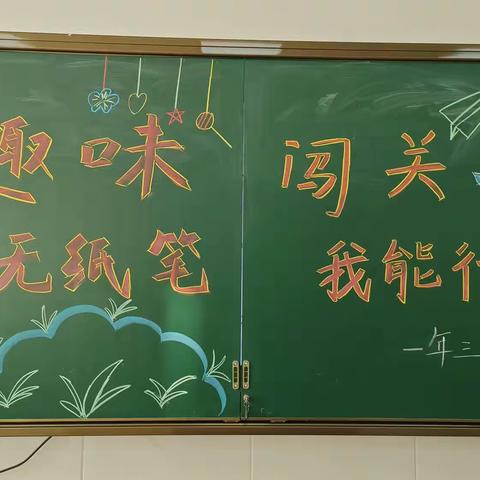 趣味 闯关
无纸笔 我能行
一年三